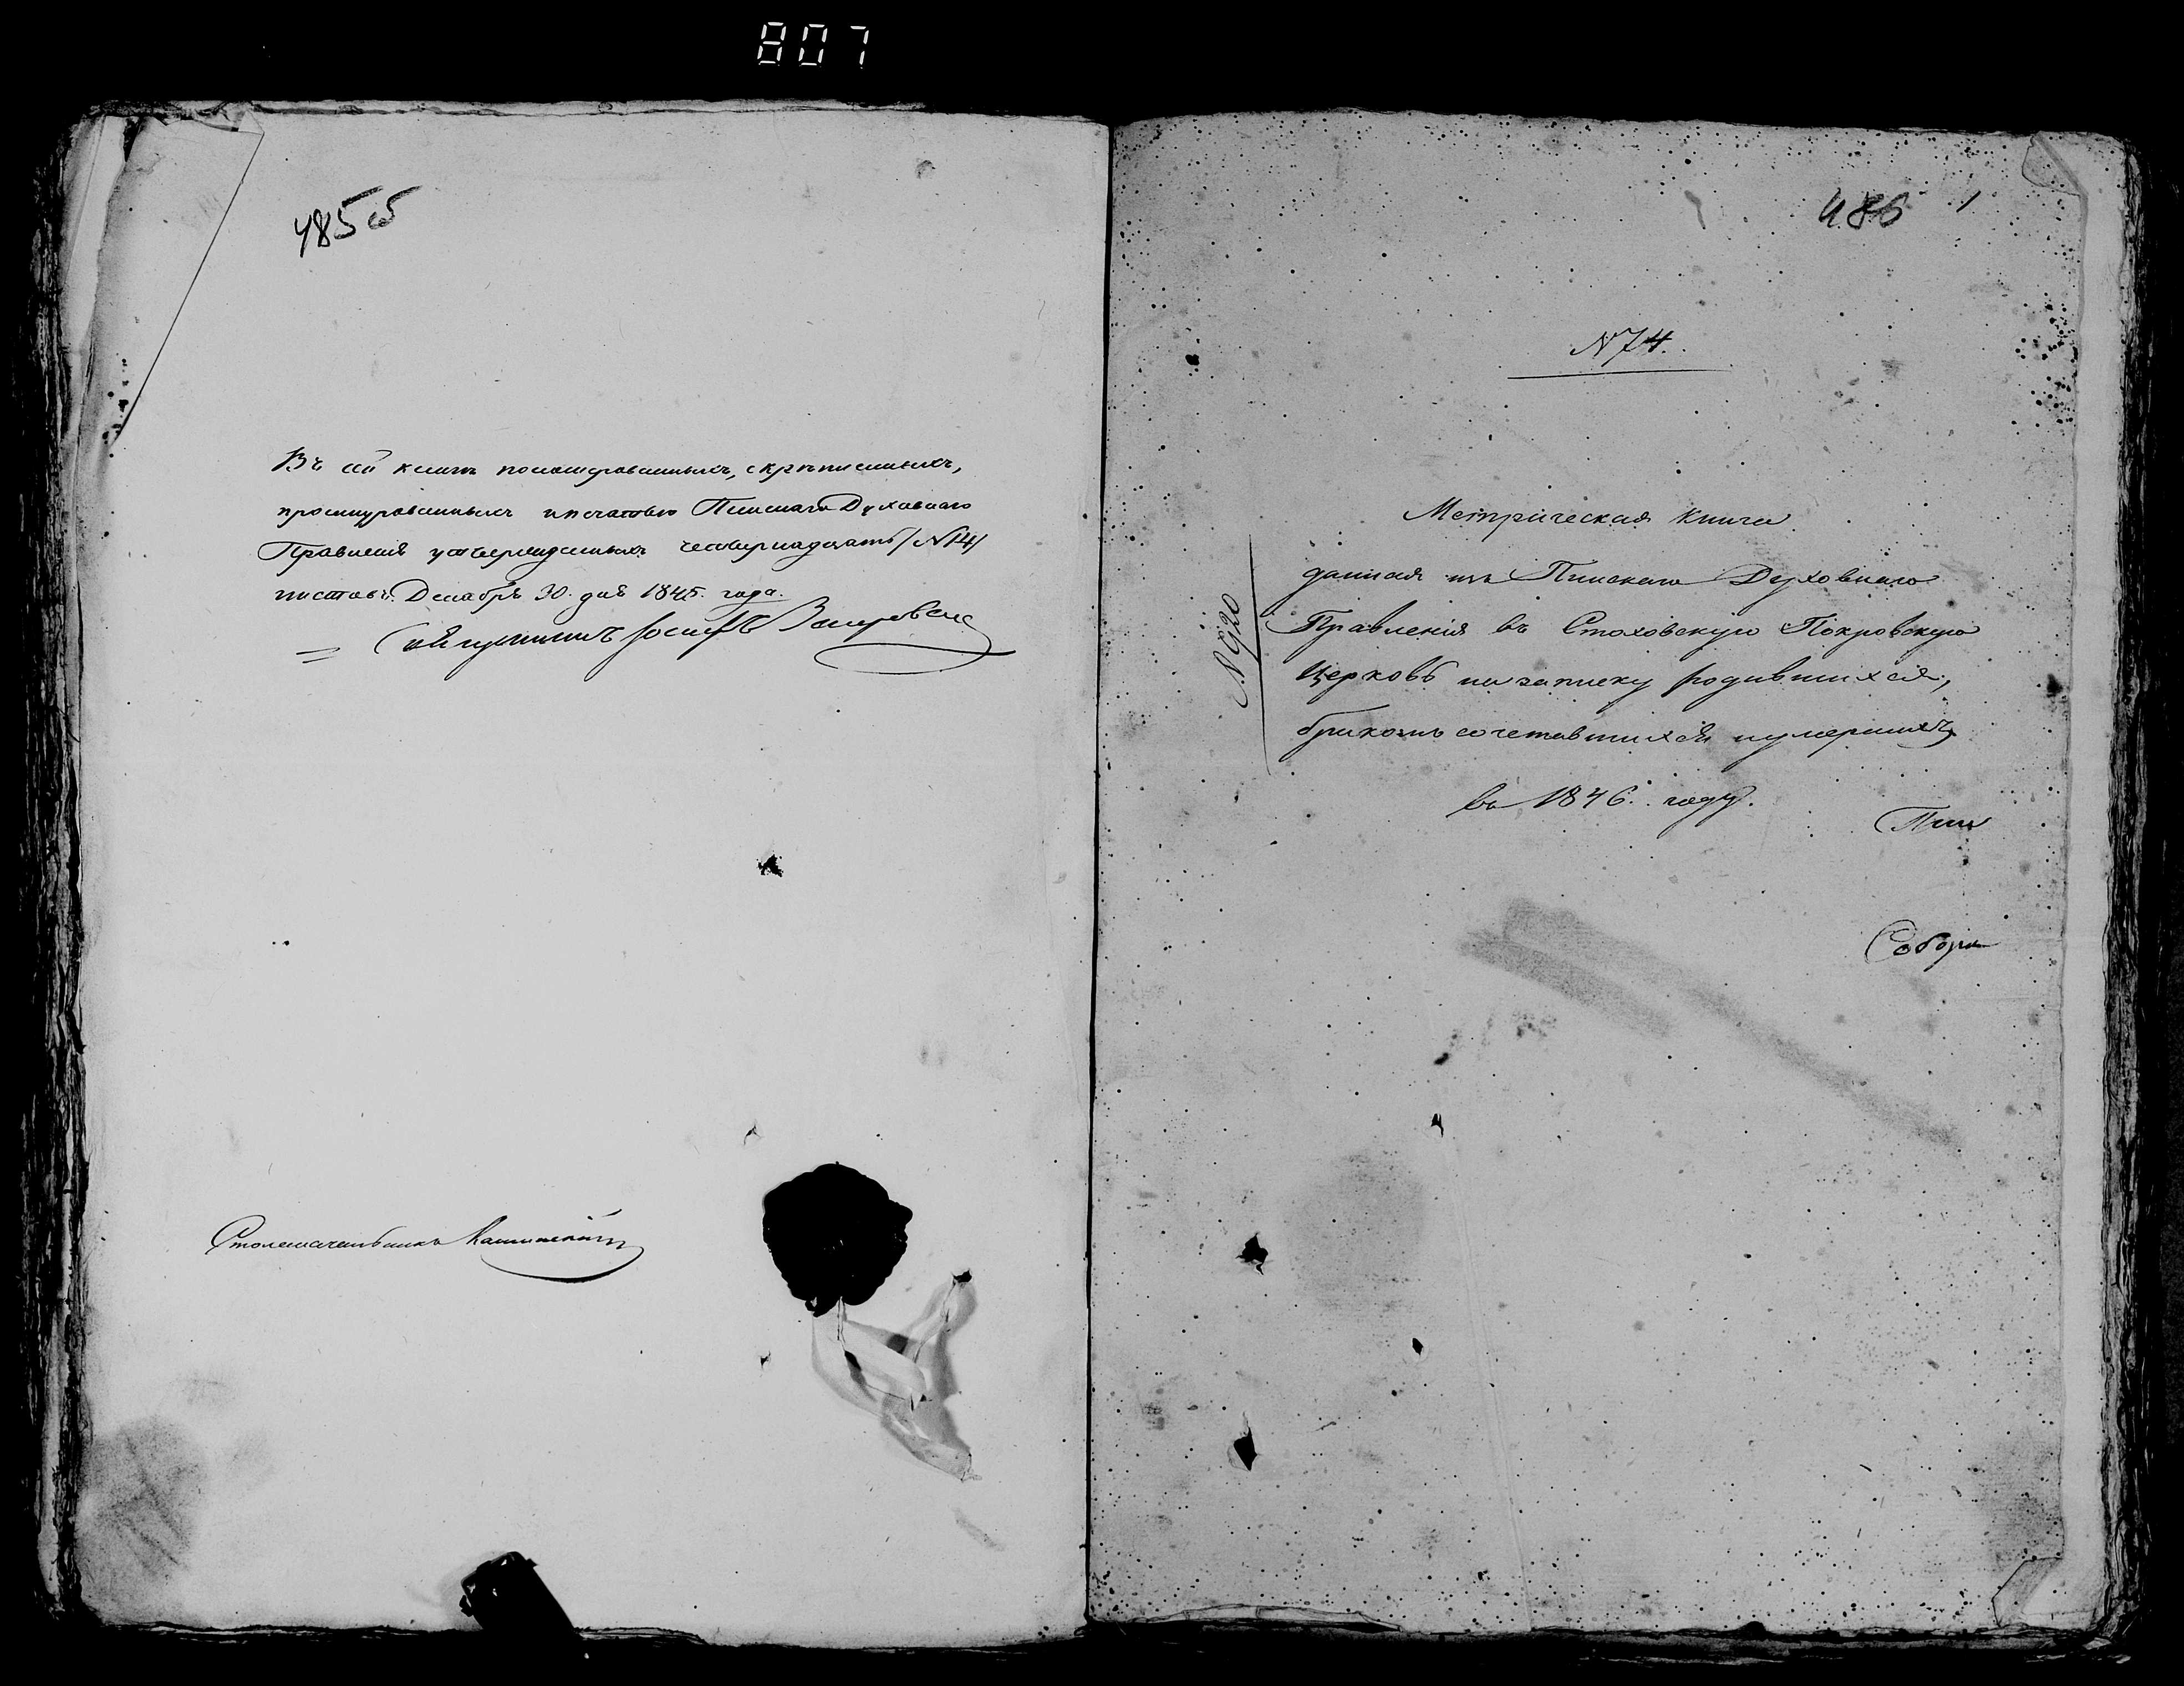 807
485 об
Въ сей книгѣ пономерованныхъ, скрѣпленныхъ,
прошнурованныхъ и печатью Пинскаго Духовнаго
Правленія утвержденныхъ четырнадцать /№14/
листовъ. Декабря 30. дня 1845. года.
Іосифъ
Столоначальникъ
486 1
N 74.
Метрическая Книга
данная изъ Пинскаго Духовнаго
Правленія въ Стаховскую Покровскую
Церковь на записку родившихся,
бракомъ сочетавшихся и умершихъ
въ 1846. году.
N 920
Пин
Соборн